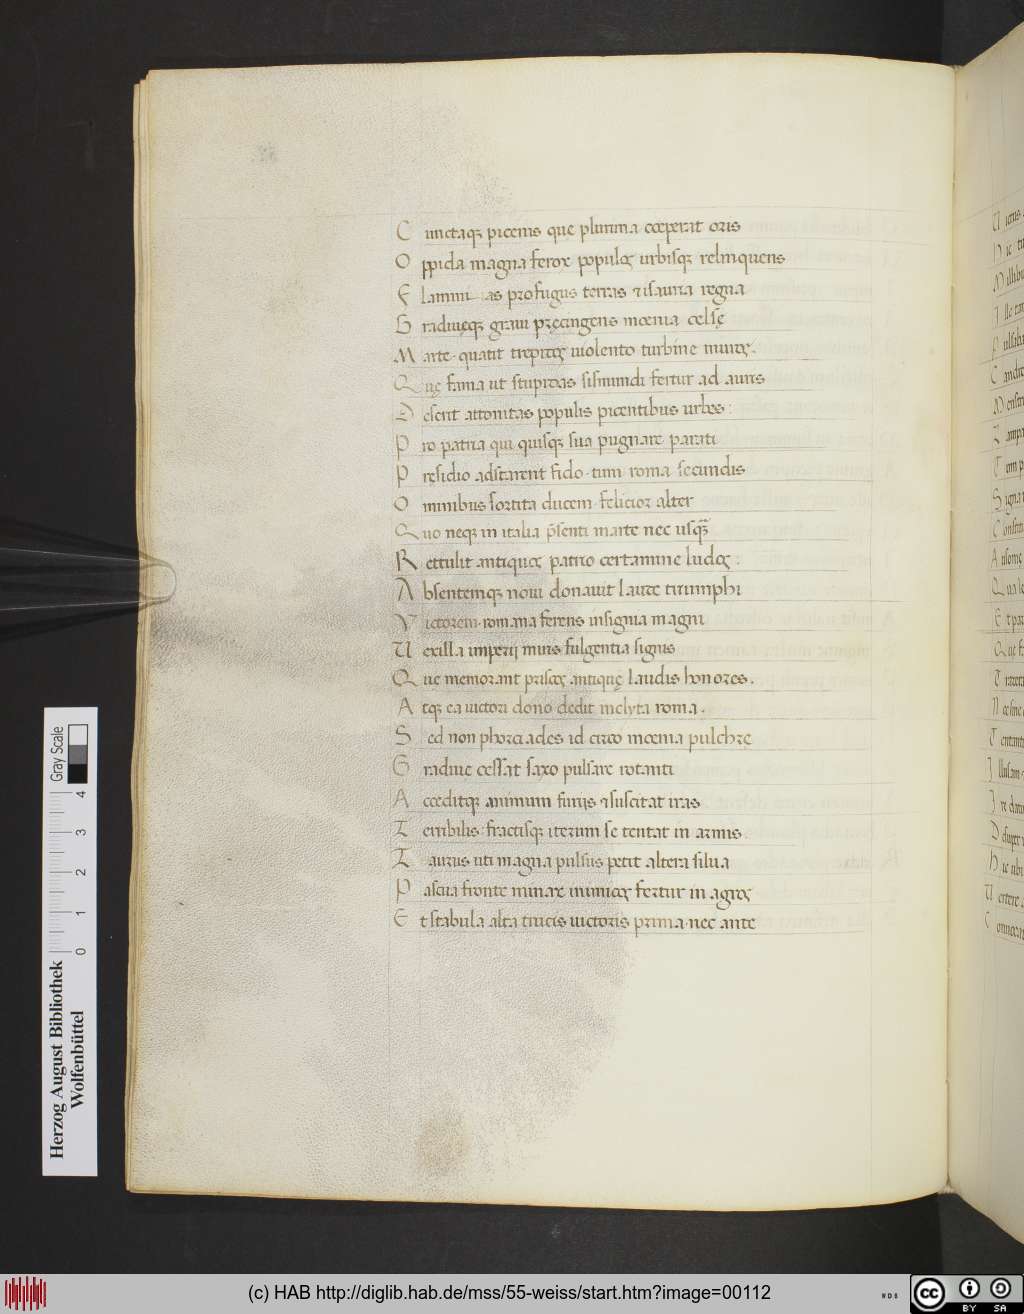 C unctaqꝫ picenis que plurima cœperat oris
O ppida magna ferox populos urbisqꝫ relinquens
F lamini as profugus terras ⁊ isauria regna
G radiuęqꝫ graui pręcingens mœnia celsę
M arte quatit trepidos uiolento turbine muros.
Q uę fama ut stupidas sismundi fertur ad aures
D eserit attonitas populis picentibus urbes:
P ro patria qui quisqꝫ sua pugnare parati
P residio adstarent fido. tum roma secundis
O minibus sortita ducem. felicior alter
Q uo neqꝫ in italia p̄senti marte nec usqꝫ
R ettulit antiquos patrio certamine ludos:
A bsentemqꝫ noui donauit lauro triumphi
V ictorem. romana ferens insignia magni
U exilla imperij miris fulgentia signis
Q ue memorant priscos antiquę laudis honores.
A tqꝫ ea uictori dono dedit inclyta roma.
S ed non phorciades id circo mœnia pulchre
G radiuę cessat saxo pulsare rotanti
A cceditqꝫ animum furijs ⁊ suscitat iras
T erribilis. fractisqꝫ iterum se tentat in armis
T aurus uti magna pulsus petit altera silua
P ascua fronte minare inimicos fertur in agros
E t stabula alta trucis uictoris prima. nec ante
Herzog August Bibliothek
Wolfenbüttel
Gray Scale
0 1 2 3 4
(c) HAB http://diglib.hab.de/mss/55-weiss/start.htm?image=00112
cc BY SA